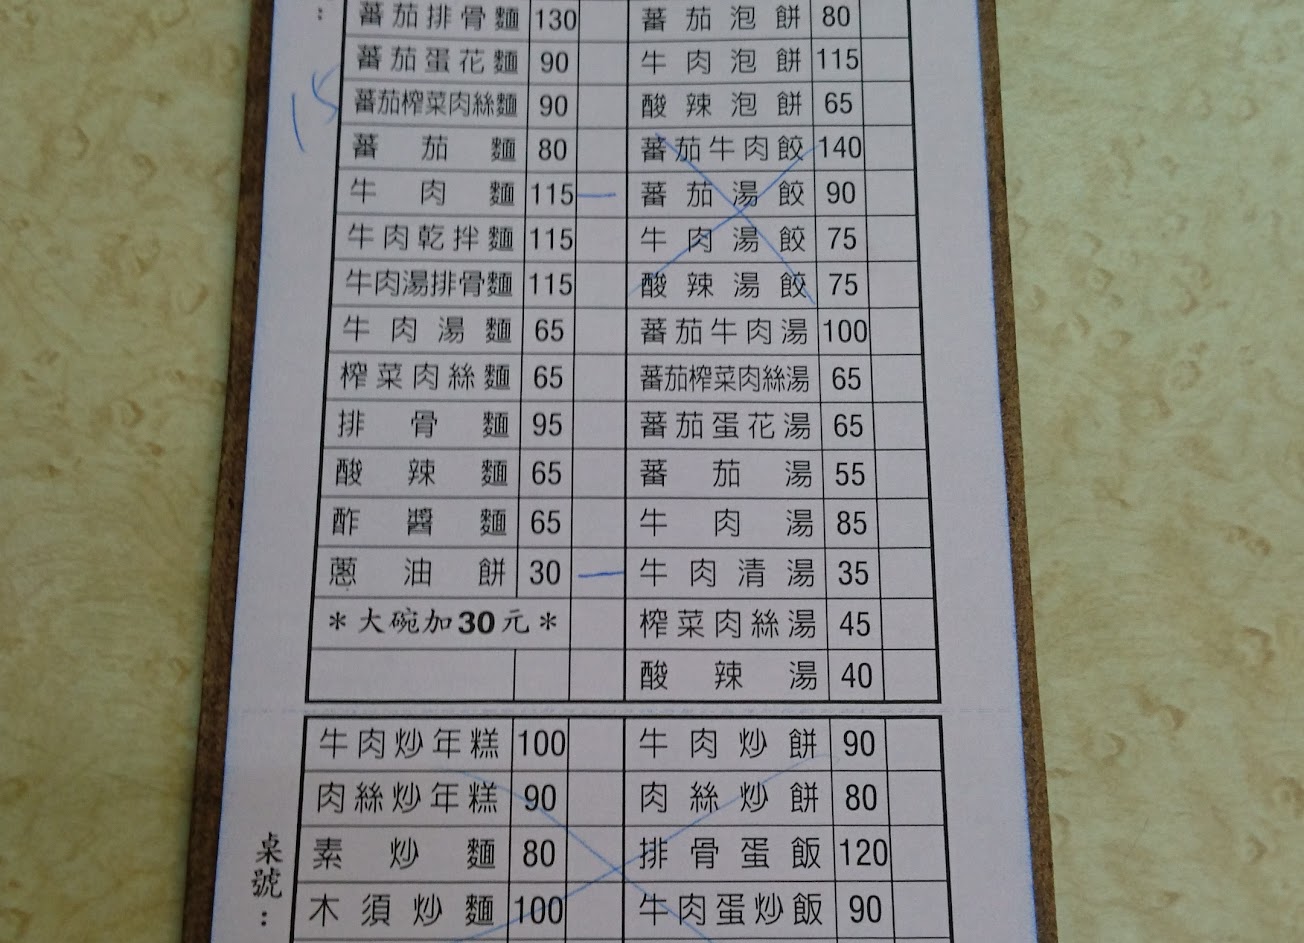 蕃茄排骨麵 130 蕃茄泡餅 80
蕃茄蛋花麵 90 牛肉泡餅 115
15
蕃茄榨菜肉絲麵 90 酸辣泡餅 65
蕃茄麵 80 蕃茄牛肉餃 140
牛肉麵 115 蕃茄湯餃 90
牛肉乾拌麵 115 牛肉湯餃 75
牛肉湯排骨麵 115 酸辣湯餃 75
牛肉湯麵 65 蕃茄牛肉湯 100
榨菜肉絲麵 65 蕃茄榨菜肉絲湯 65
排骨麵 95 蕃茄蛋花湯 65
酸辣麵 65 蕃茄湯 55
酢醬麵 65 牛肉湯 85
蔥油餅 30 牛肉清湯 35
＊大碗加30元＊ 榨菜肉絲湯 45
酸辣湯 40
牛肉炒年糕 100 牛肉炒餅 90
肉絲炒年糕 90 肉絲炒餅 80
素炒麵 80 排骨蛋飯 120
木須炒麵 100 牛肉蛋炒飯 90
桌號：